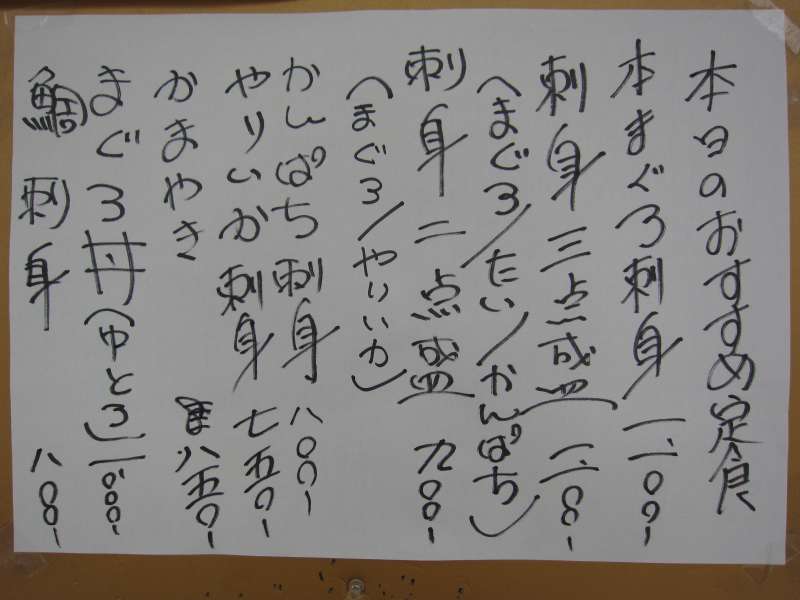 本日のおすすめ定食
本まぐろ刺身 一、二〇〇-
刺身三点盛 一、一〇〇-
(まぐろ/たい/かんぱち)
刺身二点盛 九〇〇-
(まぐろ/やりいか)
かんぱち刺身 八〇〇-
やりいか刺身 七五〇-
かまやき 八五〇-
まぐろ丼(中とろ) 一、〇〇〇-
鯛刺身 八〇〇-